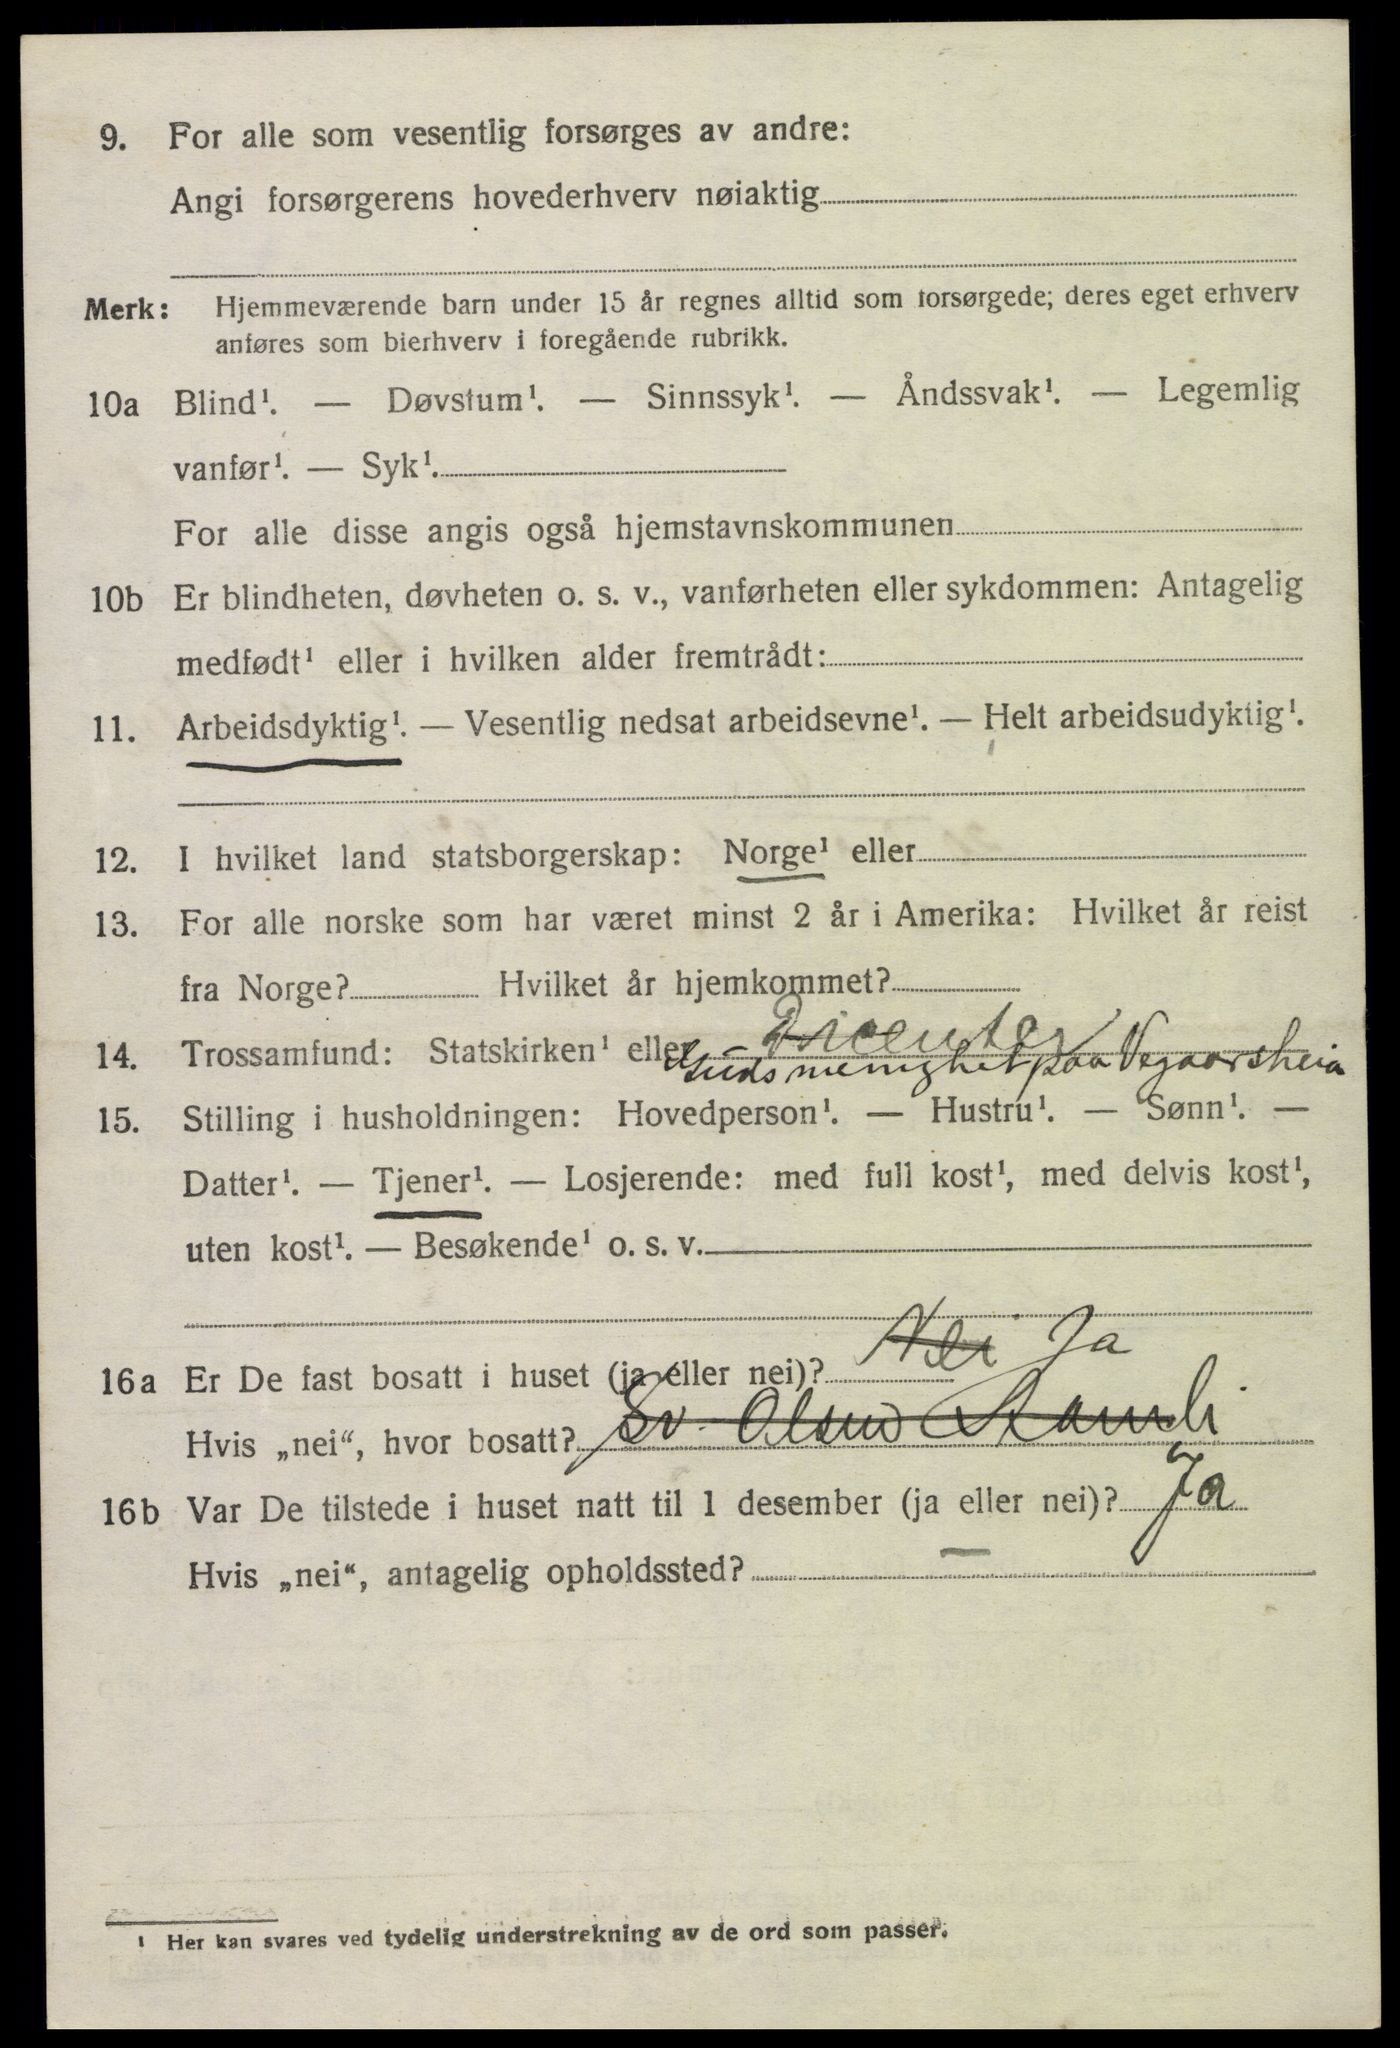 9. For alle som vesentlig forsørges av andre:
Angi forsørgerens hovederhverv nøiaktig
Merk: Hjemmeværende barn under 15 år regnes alltid som forsørgede; deres eget erhverv
anføres som bierhverv i foregående rubrikk.
10a Blind¹. — Døvstum¹. — Sinnssyk¹. — Åndssvak¹. — Legemlig
vanfør¹. — Syk¹.
For alle disse angis også hjemstavnskommunen
10b Er blindheten, døvheten o. s. v., vanførheten eller sykdommen: Antagelig
medfødt¹ eller i hvilken alder fremtrådt:
11. Arbeidsdyktig¹. — Vesentlig nedsat arbeidsevne¹. — Helt arbeidsudyktig¹.
12. I hvilket land statsborgerskap: Norge¹ eller
13. For alle norske som har været minst 2 år i Amerika: Hvilket år reist
fra Norge? Hvilket år hjemkommet?
14. Trossamfund: Statskirken¹ eller Dicenter
Guds menighet paa Vegaarsheia
15. Stilling i husholdningen: Hovedperson¹. — Hustru¹. — Sønn¹. —
Datter¹. — Tjener¹. — Losjerende: med full kost¹, med delvis kost¹,
uten kost¹. — Besøkende¹ o. s. v.
16a Er De fast bosatt i huset (ja eller nei)? Nei Ja
Hvis „nei“, hvor bosatt? Sv. Olsen
16b Var De tilstede i huset natt til 1 desember (ja eller nei)? Ja
Hvis „nei“, antagelig opholdssted? —
¹ Her kan svares ved tydelig understrekning av de ord som passer.